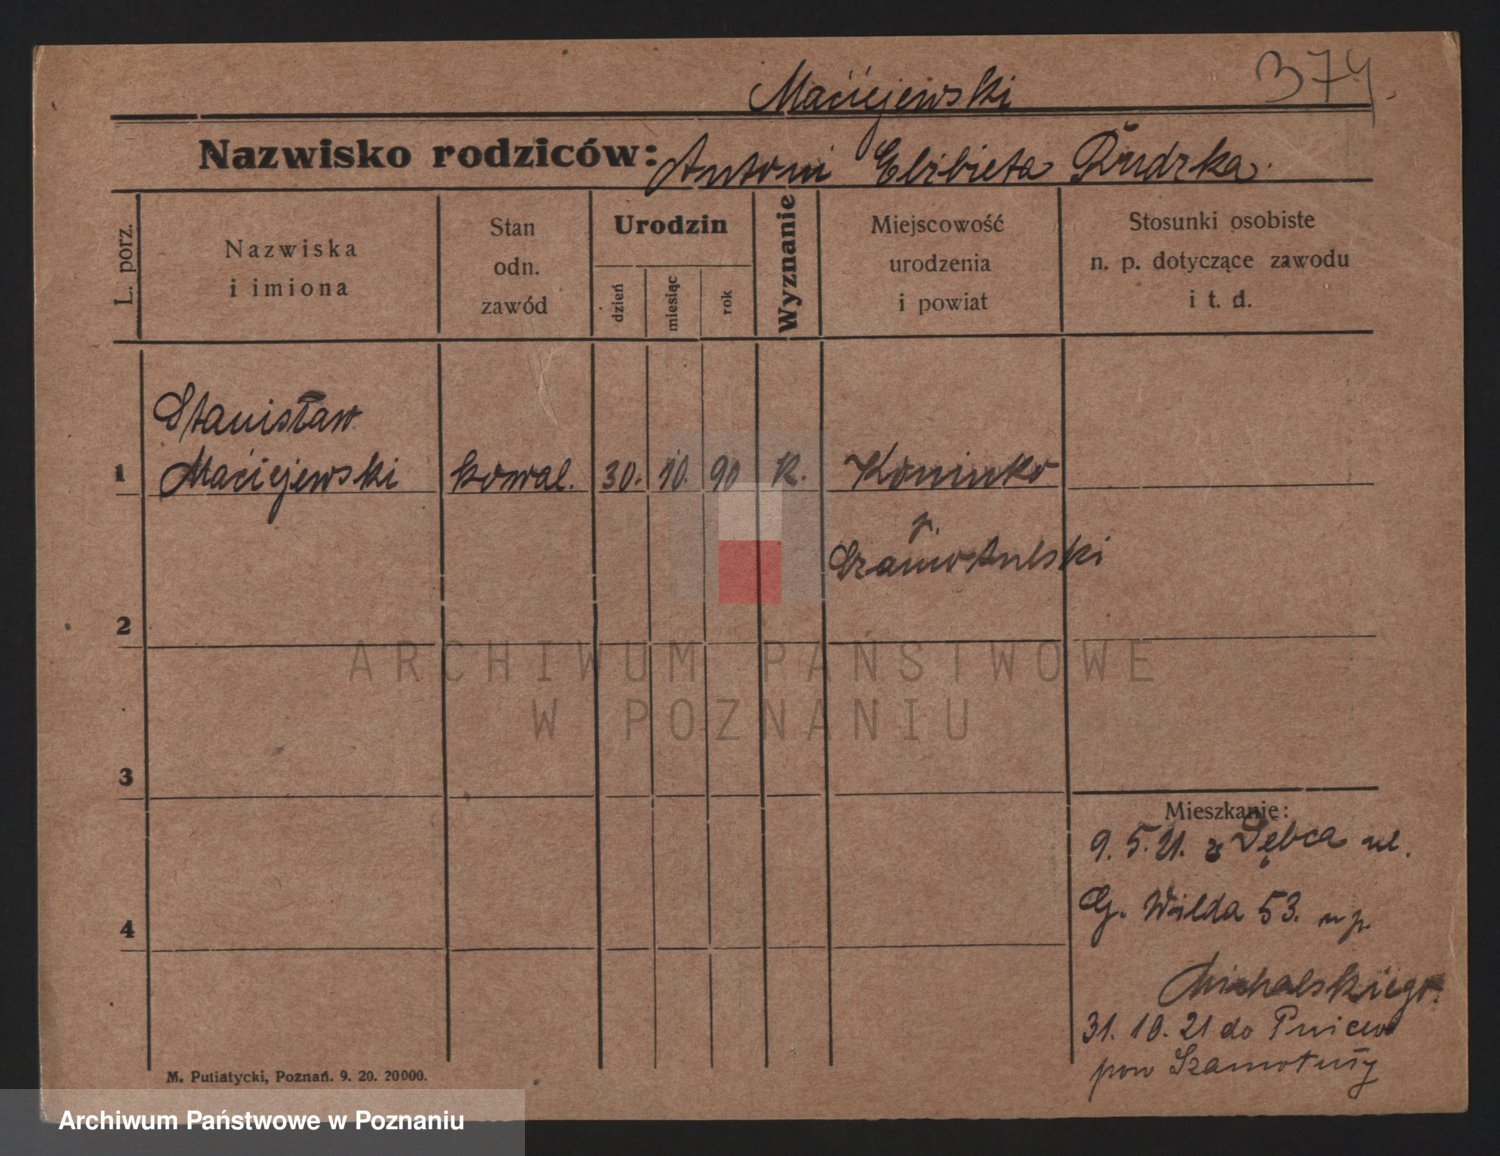 374.
Maciejewski
Nazwisko rodziców: Antoni Elżbieta Rudzka.
L. porz.
Nazwiska
i imiona
Stan
odn.
zawód
Urodzin
dzień
miesiąc
rok
Wyznanie
Miejscowość
urodzenia
i powiat
Stosunki osobiste
n. p. dotyczące zawodu
i t. d.
Stanisław
1 Maciejewski kowal. 30. 10. 90 R. Koninko
p.
Szamotulski
2
3
4
Mieszkanie:
9. 5. 21. z Dębca ul.
G. Wilda 53. u p.
Michalskiego.
31. 10. 21 do Pniew
pow Szamotuły
M. Putiatycki, Poznań. 9. 20. 20000.
ARCHIWUM PAŃSTWOWE
W POZNANIU
Archiwum Państwowe w Poznaniu